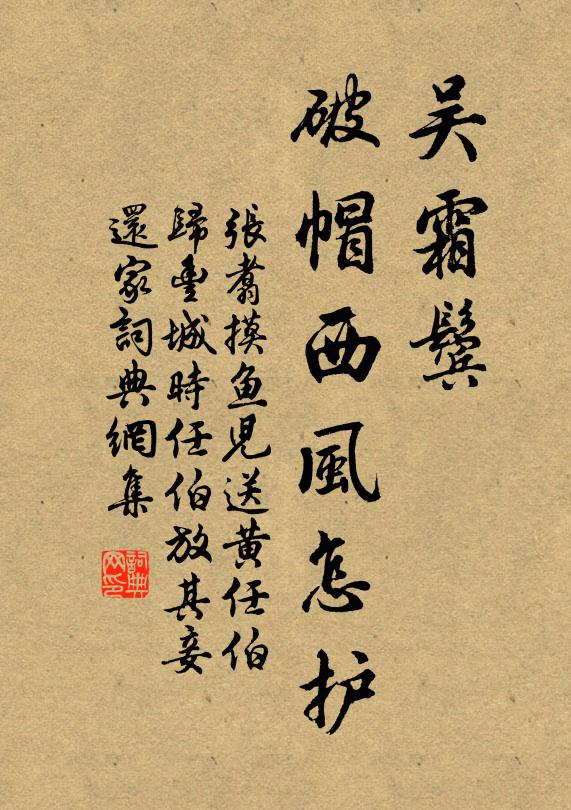 吴霜鬓
破帽西風怎护
張翥摸魚兒送黄任伯
歸豊城時任伯放其妾
還家詞典網集
詞典网印